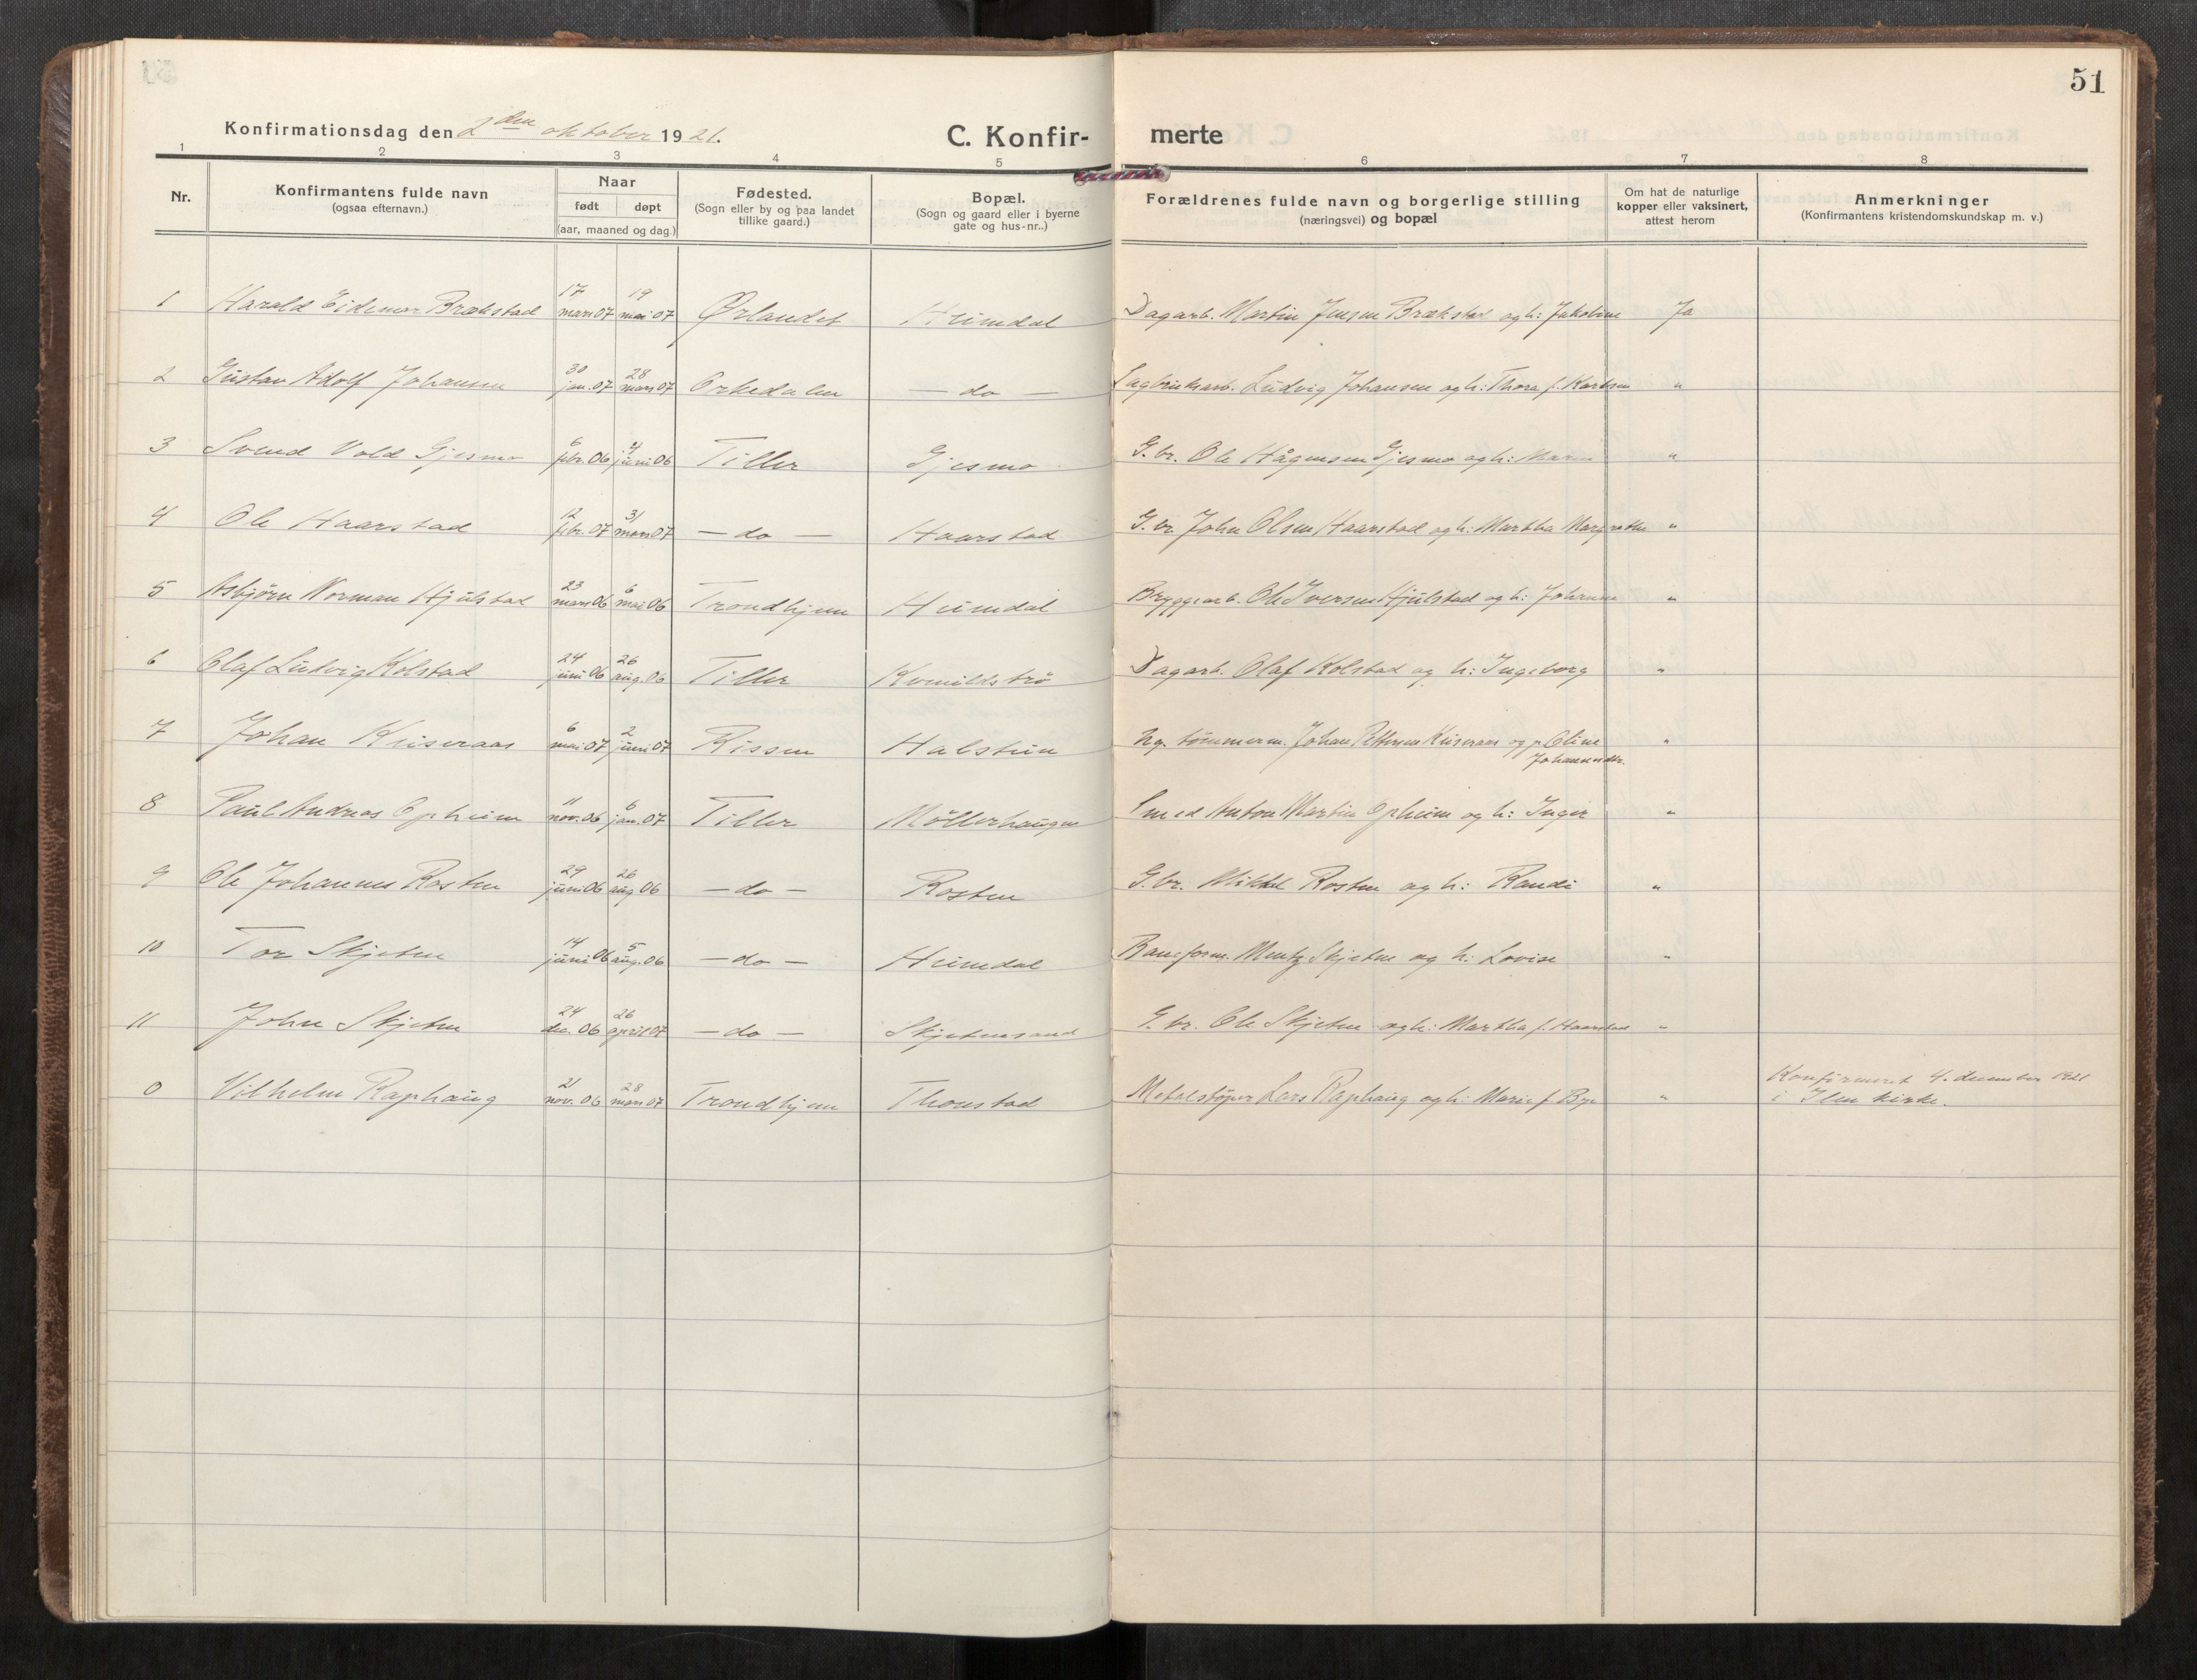 51
Konfirmationsdag den 2den oktober 1921.
C. Konfir- merte
1 2 3 4 5 6 7 8
Nr.
Konfirmantens fulde navn
(ogsaa efternavn.)
Naar
født døpt
(aar, maaned og dag.)
Fødested.
(Sogn eller by og paa landet
tillike gaard.)
Bopæl.
(Sogn og gaard eller i byerne
gate og hus-nr..)
Forældrenes fulde navn og borgerlige stilling
(næringsvei) og bopæl
Om hat de naturlige
kopper eller vaksinert,
attest herom
Anmerkninger
(Konfirmantens kristendomskundskap m. v.)
1 Harald Eidemar Brækstad 17 mars 07 19 mai 07 Ørlandet Heimdal Dagarb. Martin Jensen Brækstad og h: Jakobine Ja
2 Gustav Adolf Johansen 30 jan. 07 28 mars 07 Orkedalen — do — Ludvig Johansen og h: Thora f. Karlsen "
3 Svend Vold Gjesmo 6 febr. 06 4 juni 06 Tiller Gjesmo G. br. Ole Hågensen Gjesmo og h: Maren "
4 Ole Haarstad 12 febr. 07 31 mars 07 — do — Haarstad G. br. John Olsen Haarstad og h: Martha Margrethe "
5 Asbjørn Norman Hjulstad 23 mars 06 6 mai 06 Trondhjem Heimdal Bryggearb. Ole Iversen Hjulstad og h: "
6 Olaf Ludvig Kolstad 24 juni 06 26 aug. 06 Tiller Kvenildstrø Dagarb. Olaf Kolstad og h: Ingeborg "
7 Johan Keiseraas 6 mai 07 2 juni 07 Rissen Halstein Ug. tømmerm. Johan Pettersen Keiseraas og p. Oline
Johannesdtr. "
8 Paul Andreas Opheim 11 nov. 06 6 jan. 07 Tiller Möllerhaugen Smed Anton Martin Opheim og h: Inger "
9 Ole Johannes Rosten 29 juni 06 26 aug. 06 — do — Rosten G. br. Mikkel Rosten og h: Randi "
10 Tor Skjetne 14 juni 06 5 aug. 06 — do — Heimdal Baneform. Mentz Skjetne og h: Lovise "
11 John Skjetne 24 dec. 06 26 april 07 — do — Skjetnesand G. br. Ole Skjetne og h: Martha f. Haarstad "
0 Vilhelm Raphaug 21 nov. 06 28 mars 07 Trondhjem Thonstad Metalstøper Lars Raphaug og h: Marie f. Bye " Konfirmeret 4. december 1921
i Ilen kirke.